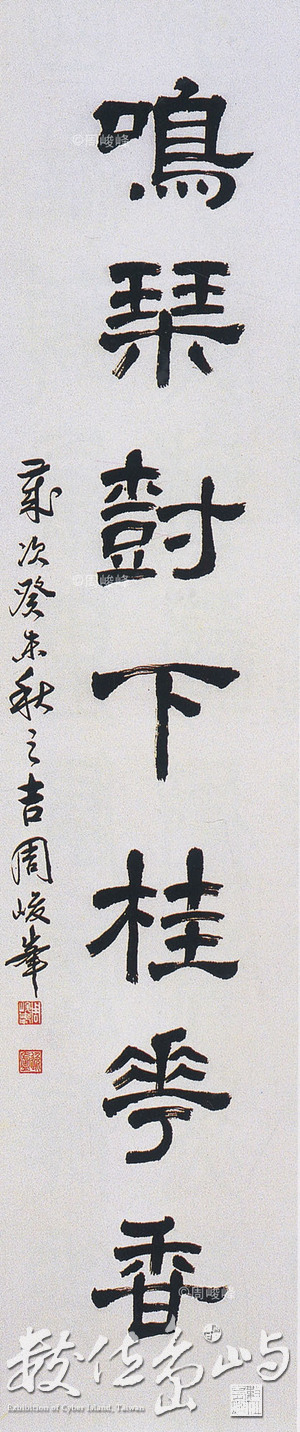 鳴琹樹下桂華香
歲次癸未秋之吉周峻峯
©周峻峰
©周峻峰
©周峻峰
數位島嶼
Exhibition of Cyber Island, Taiwan